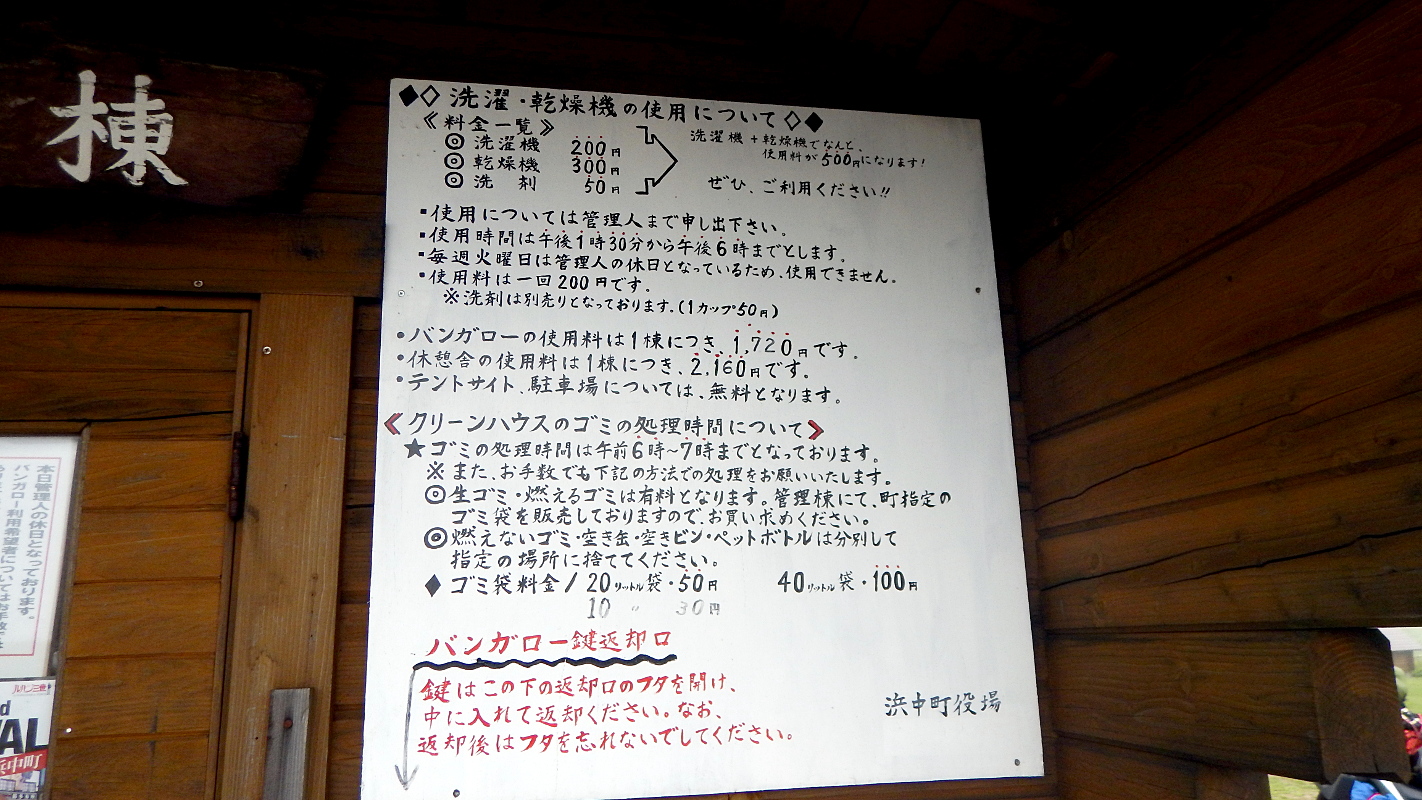 棟
◆◇洗濯・乾燥機の使用について◇◆
《料金一覧》
◎洗濯機 200円
◎乾燥機 300円
◎洗剤 50円
洗濯機+乾燥機でなんと、
使用料が500円になります!
ぜひ、ご利用ください!!
▪使用については管理人まで申し出下さい。
▪使用時間は午後1時30分から午後6時までとします。
▪毎週火曜日は管理人の休日となっているため、使用できません。
▪使用料は一回200円です。
※洗剤は別売りとなっております。(1カップ50円)
•バンガローの使用料は1棟につき、1,720円です。
•休憩舎の使用料は1棟につき、2.160円です。
•テントサイト、駐車場については、無料となります。
《クリーンハウスのゴミの処理時間について》
★ゴミの処理時間は午前6時~7時までとなっております。
※また、お手数でも下記の方法での処理をお願いいたします。
◎生ゴミ・燃えるゴミは有料となります。管理棟にて、町指定の
ゴミ袋を販売しておりますので、お買い求めください。
◎燃えないゴミ・空き缶・空きビン・ペットボトルは分別して
指定の場所に捨ててください。
◆ゴミ袋料金/20リットル袋・50円 40リットル袋・100円
10 〃 30円
バンガロー鍵返却口
鍵はこの下の返却口のフタを開け、
中に入れて返却ください。なお、
返却後はフタを忘れないでしてください。
浜中町役場
本日管理人の休日となっております。
バンガロー利用希望者についてはお手数では
ルパン三世
浜中町